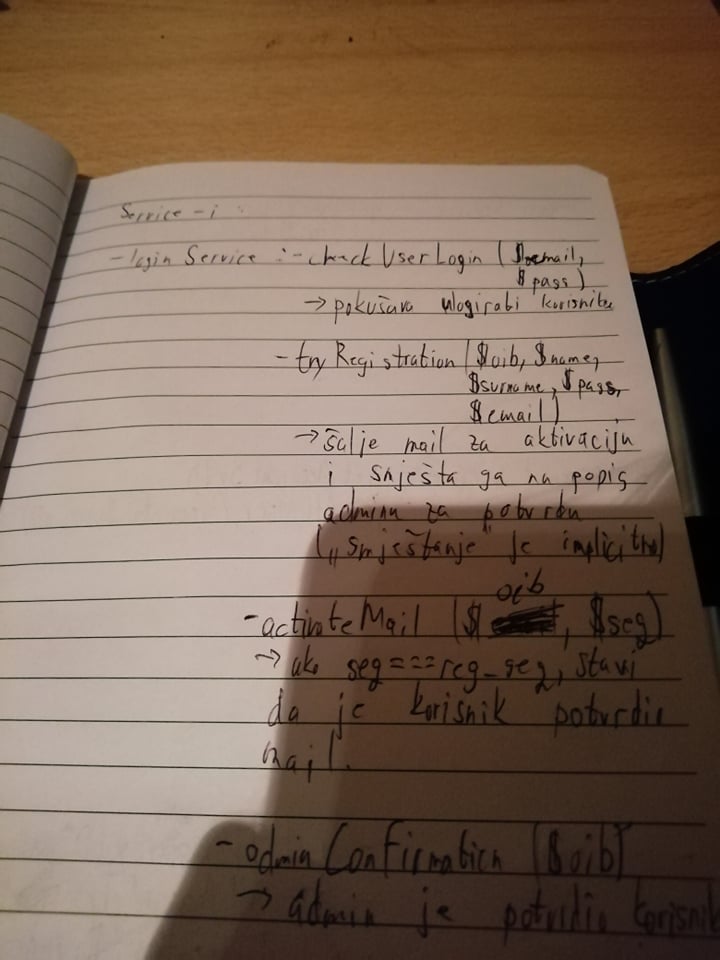 Service-i :
- login Service :- check UserLogin ($email,
$pass)
→ pokušava ulogirati korisnika
- try Registration ($oib, $name,
$surname, $pass,
$email)
→ šalje mail za aktivaciju
i smješta ga na popis
admina za potvrdu
(„smještanje" je implicitno)
oib
- activateMail ($ , $seq)
→ ako seq===reg_seq, stavi
da je korisnik potvrdio
majl.
- adminConfirmation ($oib)
→ admin je potvrdio korisnik